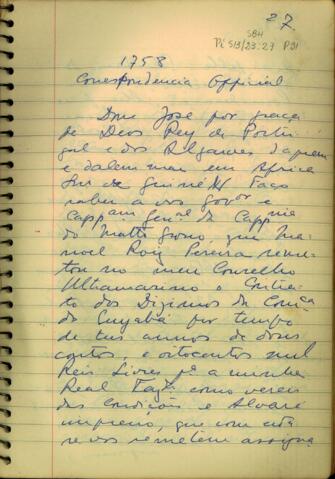 27.
SBH
Pi 513/23:27 P21
1758
Correspondencia Official
Dom José por graça
de Deos Rey de Portu
gal e dos Algarves daquem
e dalem mar em Africa
Snr de Guiné &ª Faço
saber a vos Govor e
Cappam Genal da Cappnia
do Matto Groso, que Ma
noel Roiz Pereira rema
tou no meu Conselho
Ultramarino o Contra
to dos Dizimos da Comca
do Cuyabá por tempo
de tres annos de dous
contos, e oitocentos mil
Reis Livres pª a minha
Real Fazª como vereis
das Condições e Alvará
impreso, que com esta
se vos remetem assigna